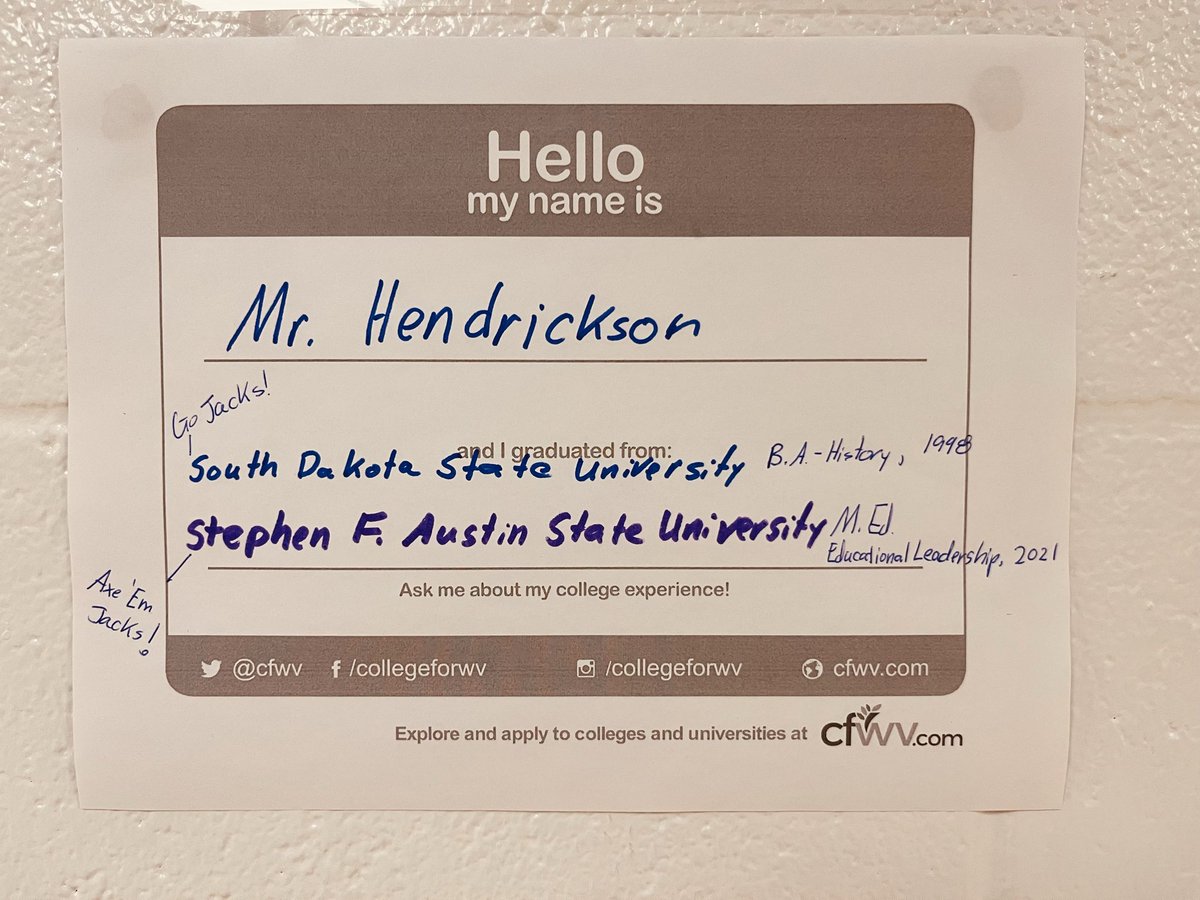 Hello
my name is
Mr. Hendrickson
Go Jacks!
and I graduated from:
South Dakota State University B.A. - History, 1998
Stephen F. Austin State University M.Ed.
Educational Leadership, 2021
Axe 'Em
Jacks!
Ask me about my college experience!
@cfwv f /collegeforwv /collegeforwv cfwv.com
Explore and apply to colleges and universities at cfwv.com